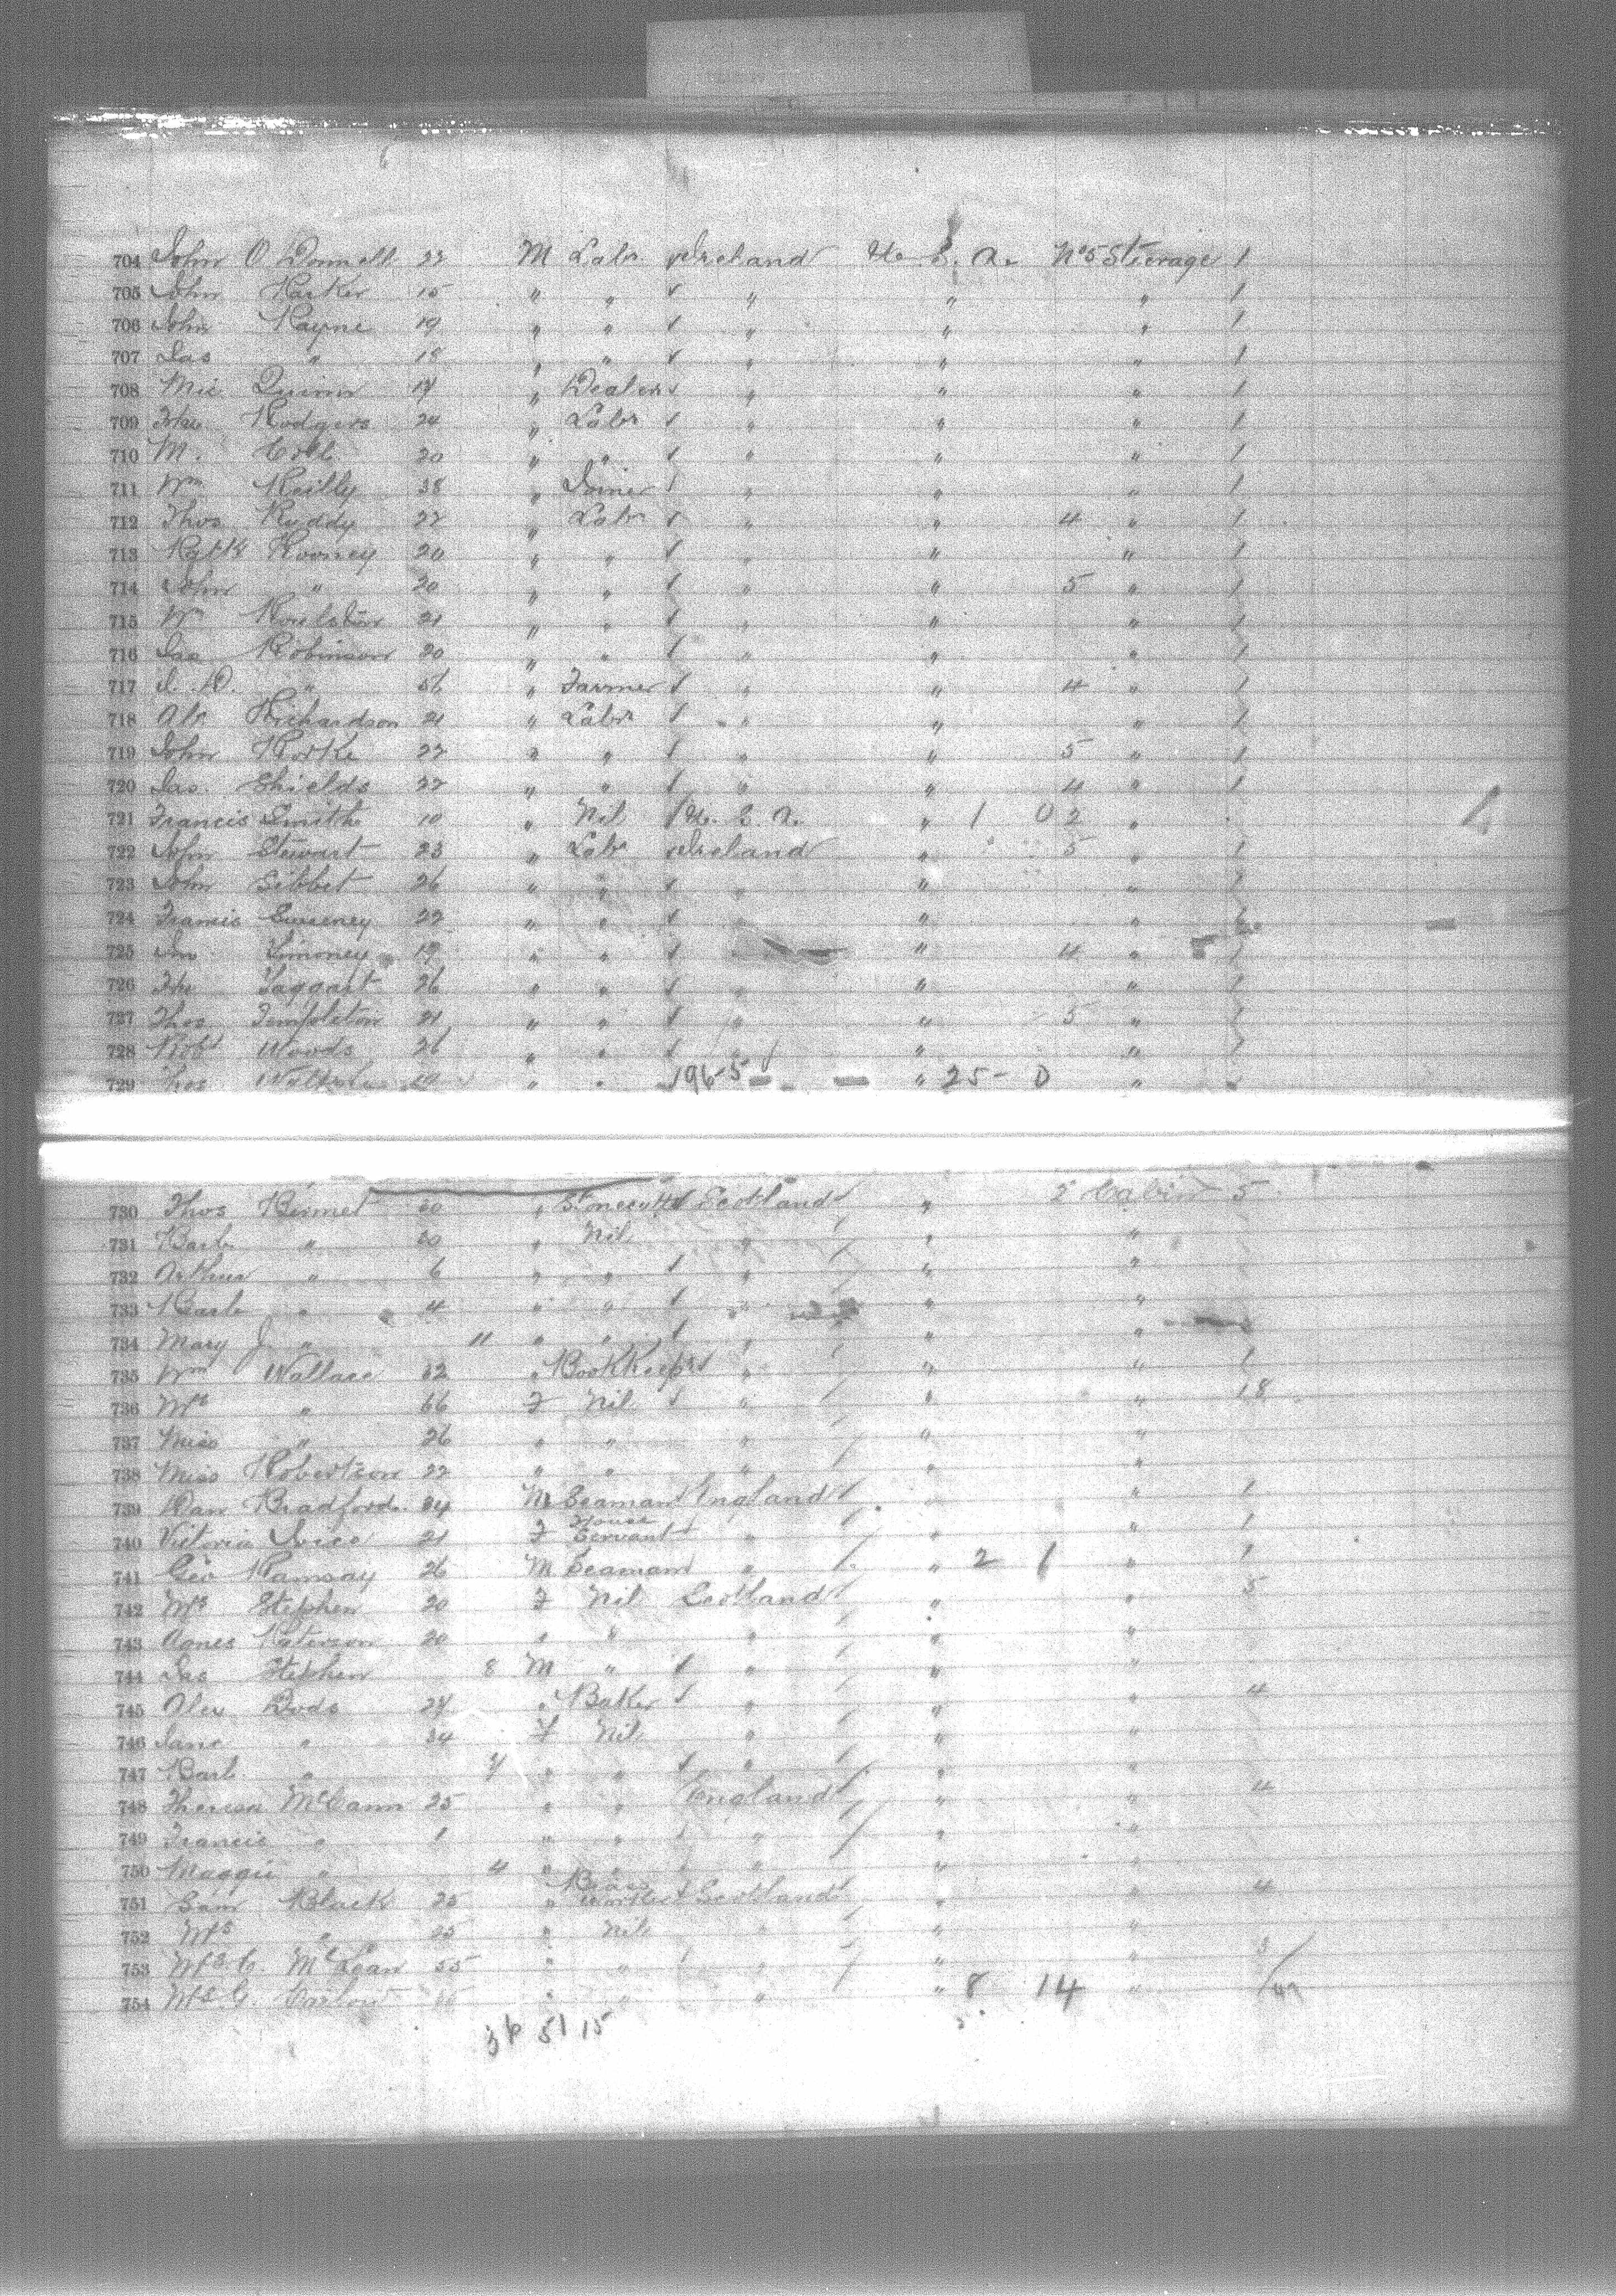 704 John O'Donnell 22 M Labr Ireland U. S. A. No 5 Steerage 1
705 John Parker 15 " " " " " 1
706 John Rayne 19 " " " " " 1
707 Jas " 18 " " " " " 1
708 Mic Quinn 17 " Dealer " " " 1
709 Rodgers 24 " Labr " " " 1
710 M. 20 " " " " " 1
711 Wm Reilly 38 " Joiner " " " 1
712 Thos Ruddy 22 " Labr " " 4 " 1
713 Patk Rooney 20 " " " " " 1
714 John " 20 " " " " 5 " 1
715 Wm Roulston 21 " " " " " 1
716 Jas Robinson 20 " " " " " 1
717 " 56 " Farmer " " 4 " 1
718 Richardson 21 " Labr " " " 1
719 John Rorke 22 " " " " 5 " 1
720 Jas. Shields 22 " " " " 4 " 1
721 Francis Smith 10 " Nil U. S. A. " 1 0 2 "
722 John Stewart 23 " Labr Ireland " 5 " 1
723 John Sibbet 26 " " " " " 1
724 Francis Sweeney 22 " " " " "
725 Timoney 19 " " " " 4 " 1
726 Taggart 26 " " " " " 1
727 Thos Templeton 21 " " " " 5 " 1
728 Robt Woods 26 " " " " " 1
729 Thos 19 " " 196-5 " 25- 0 "
730 Thos 60 " Stonecutter Scotland " 2d Cabin 5
731 Barb. " 60 " Nil " " "
732 Arthur " 6 " " " " "
733 " 4 " " " " "
734 Mary J. " 11 " " " " "
735 Wm Wallace 62 " Bookkeepr " " " 1
736 Mrs " 66 F Nil " " " 18
737 Miss " 26 " " " " "
738 Miss Robertson 22 " " " " "
739 Dan Bradford 34 M Seaman England " " 1
740 Victoria 21 F House Servant " " " 1
741 Geo Ramsay 26 M Seaman " " 2 1 " 1
742 Mrs Stephen 20 F Nil Scotland " " 5
743 Agnes Paterson 20 " " " " "
744 Jas Stephen 8 M " " " "
745 Alex Dods 27 " Baker " " " 4
746 Jane " 34 F Nil " " "
747 Barb. " 7 " " " " "
748 Theresa McCann 25 " " England " " 4
749 Francis " 1 " " " " "
750 Maggie " 4 " " " " "
751 Sam Black 25 " Brass worker Scotland " " 4
752 Mrs " 25 " Nil " " "
753 Mrs C. McLean 55 " " " " " 3
754 Mrs G. " " " " 8 14 "
51 15